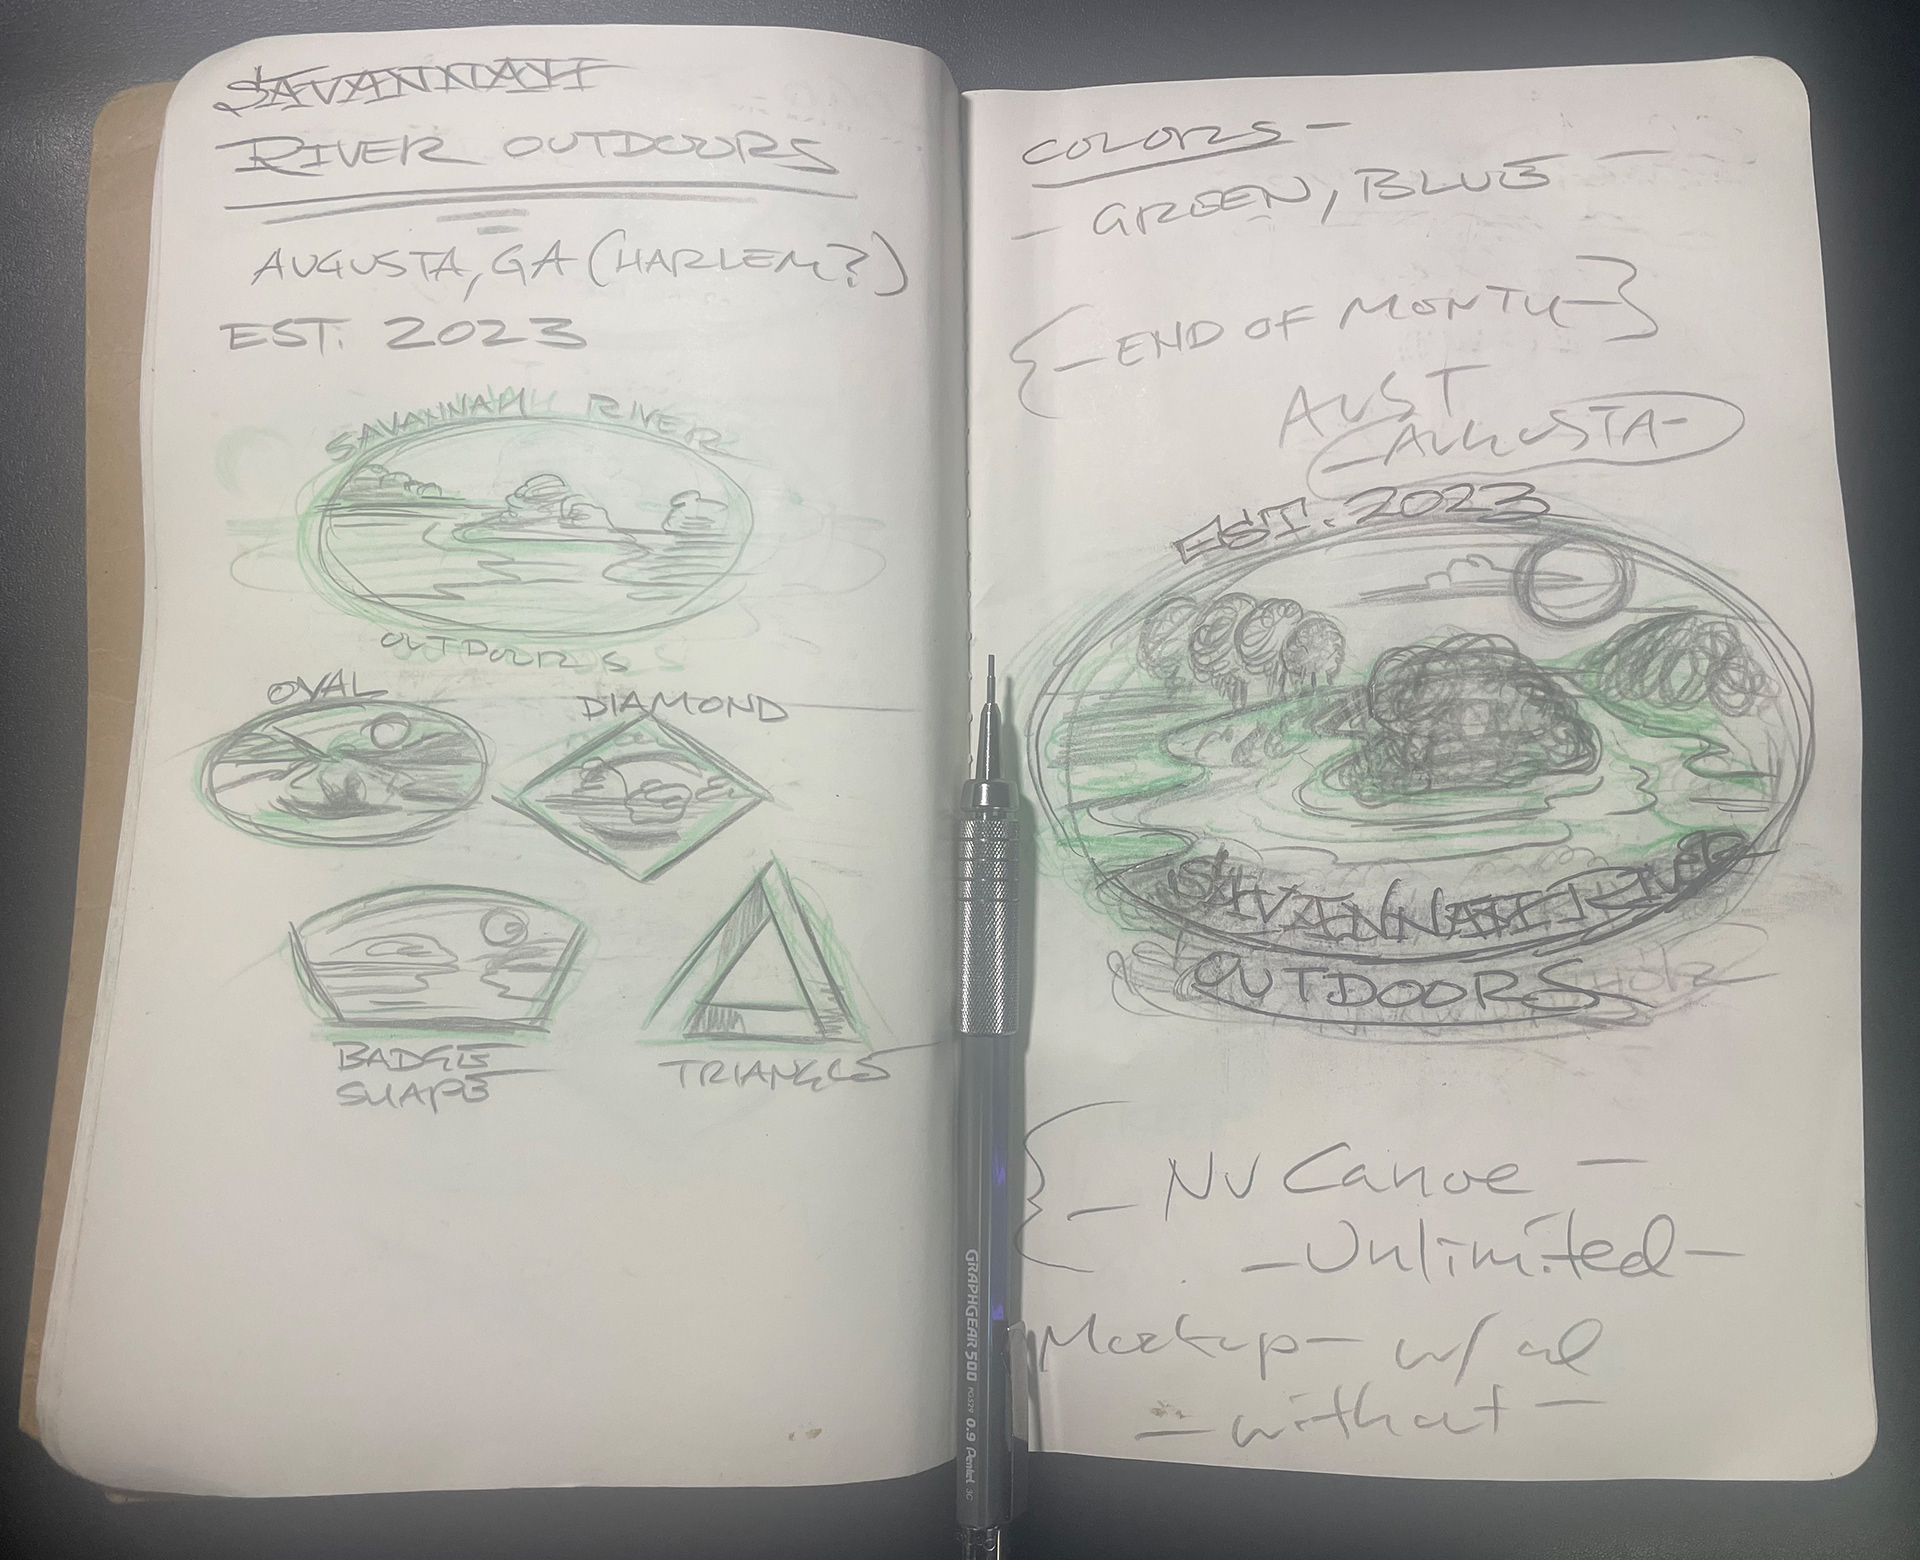 SAVANNAH
RIVER OUTDOORS
AUGUSTA, GA (HARLEM?)
EST. 2023
SAVANNAH RIVER
OUTDOORS
OVAL
DIAMOND
BADGE
SHAPE
TRIANGLE
COLORS-
- GREEN, BLUE -
{-END OF MONTH-}
AUST
-AUGUSTA-
EST. 2023
SAVANNAH RIVER
OUTDOORS
{- NV Canoe -
-Unlimited-
Mockup- w/
- without -
GRAPHGEAR 500 PG529 0.9 Pentel